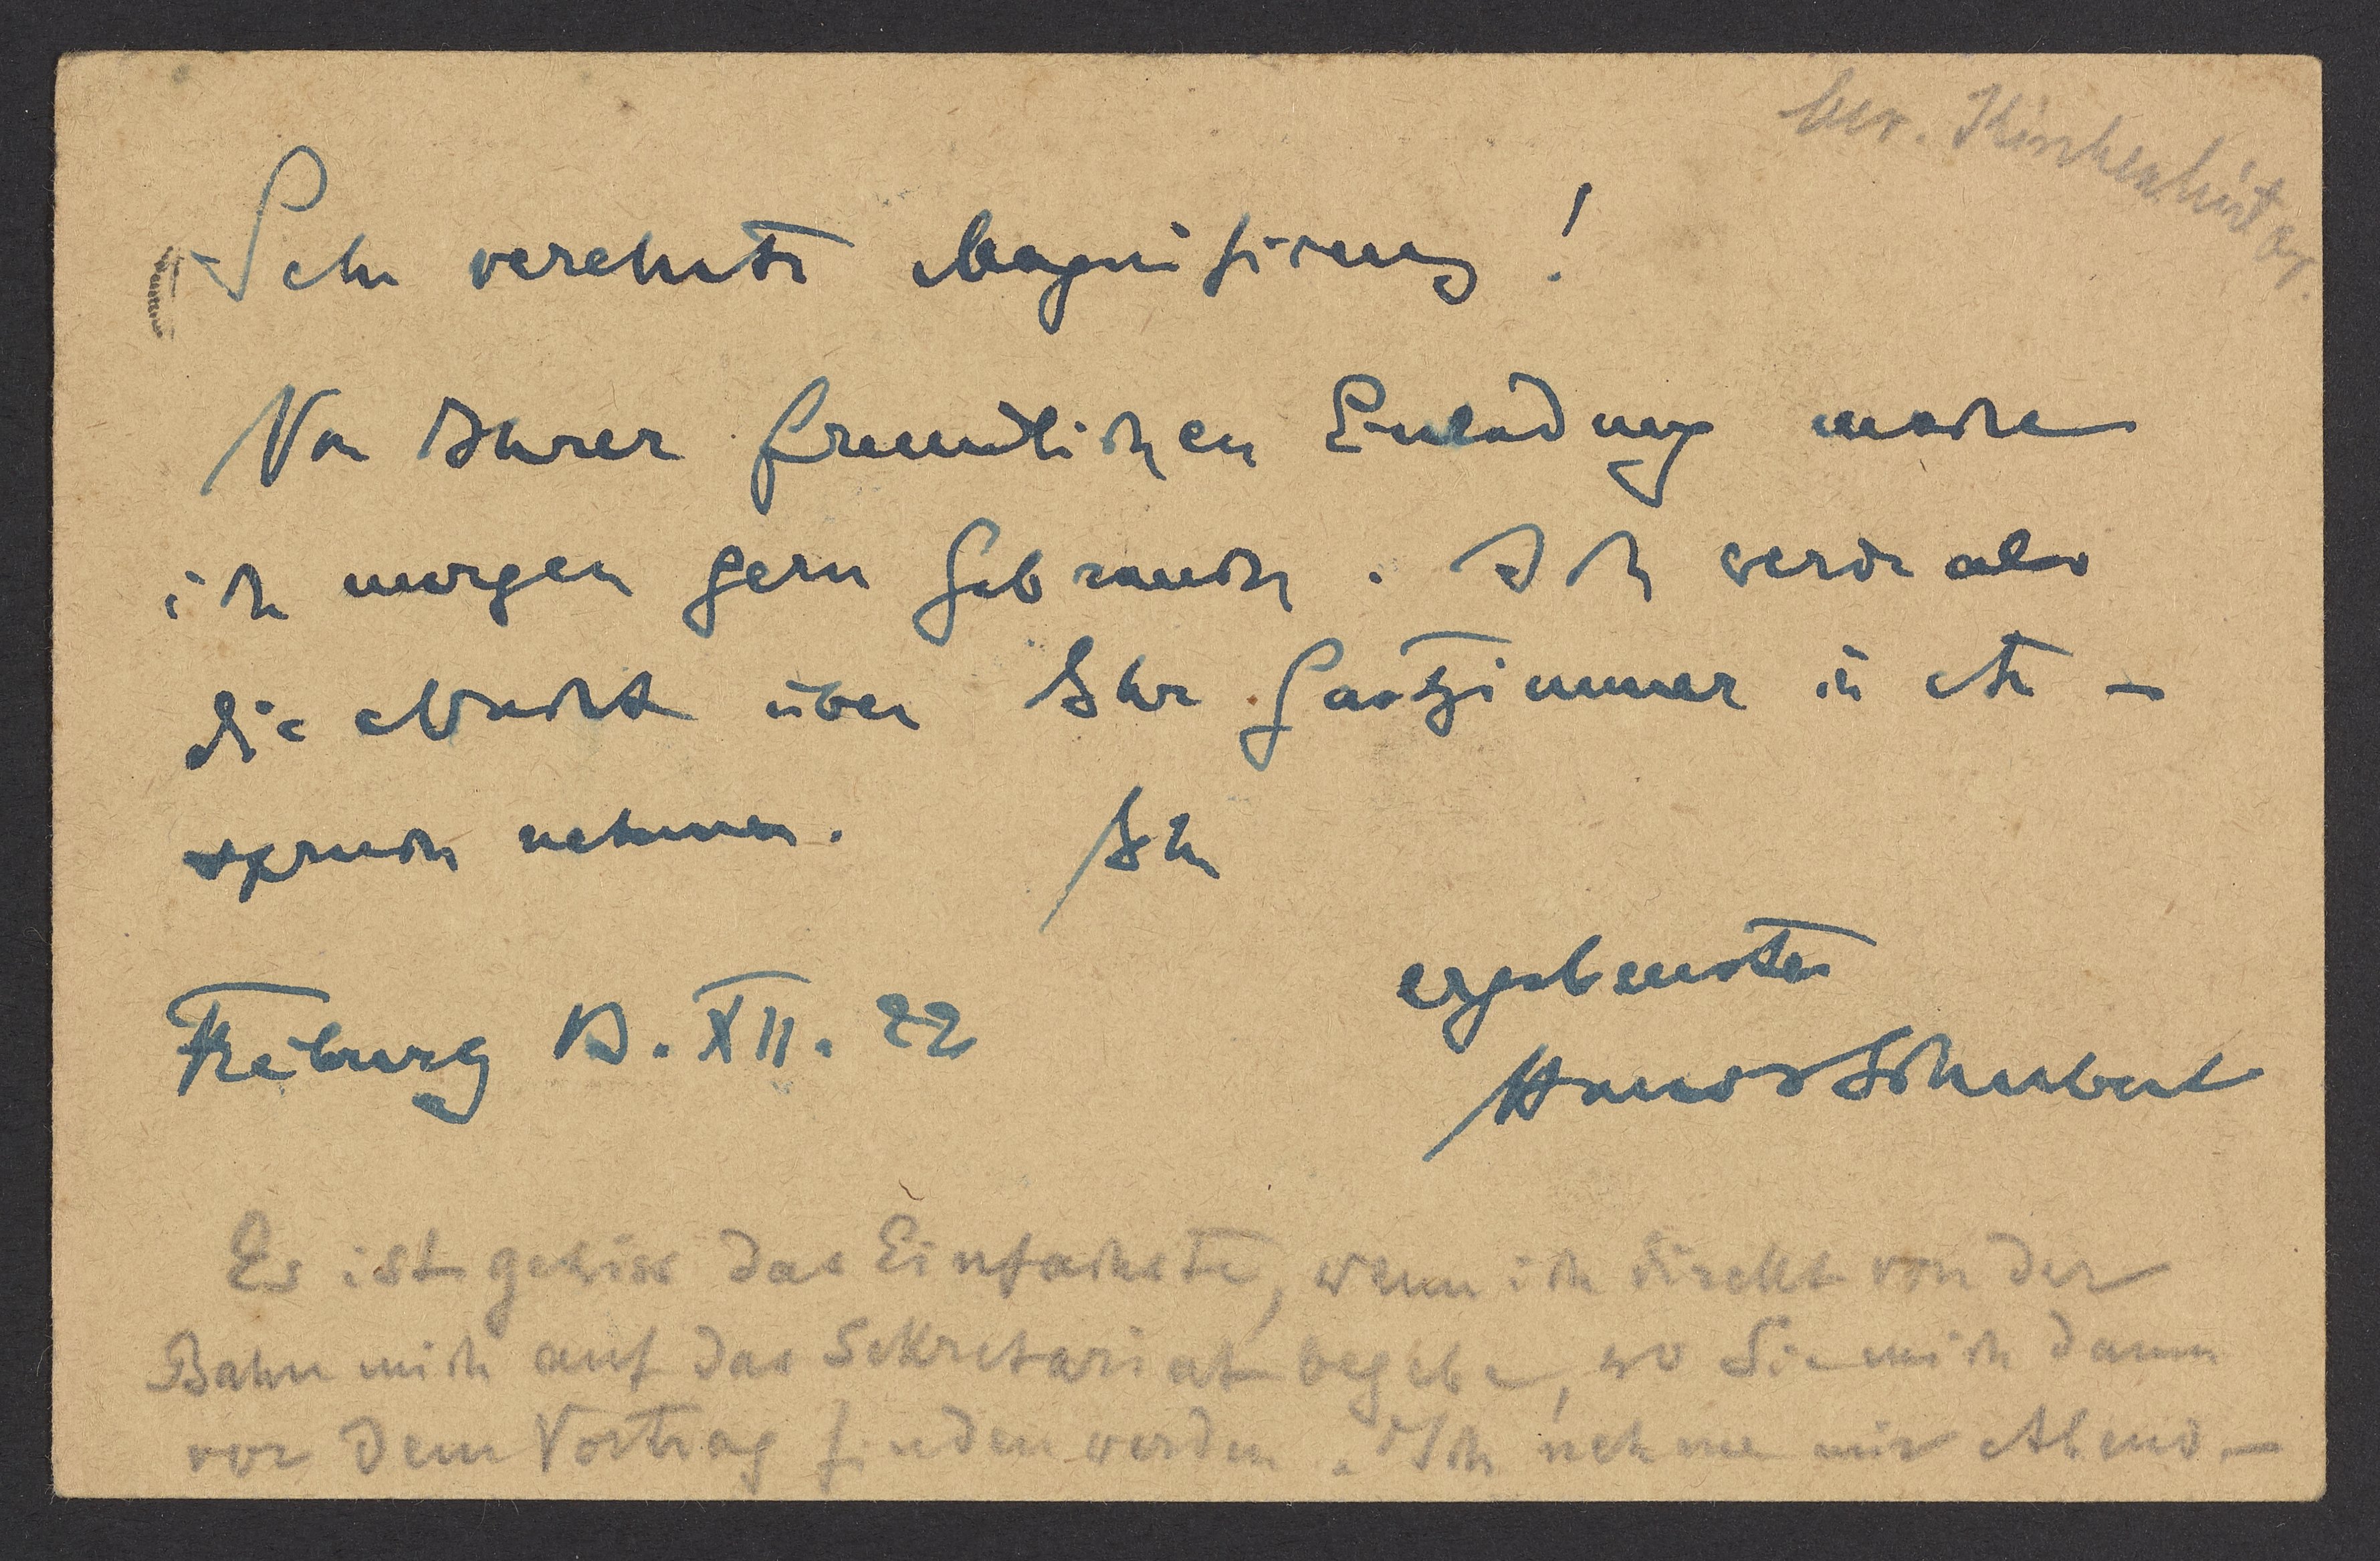 ber. Kirchenhistor.
Sehr verehrte Magnifizenz!
Von Ihrer freundlichen Einladung mache
ich morgen gern Gebrauch. Ich werde also
die Nacht über Ihr Gastzimmer in An-
spruch nehmen. Ihr
ergebenster
Freiburg 13. XII. 22
Hans v Schubert
Es ist gewiss das Einfachste, wenn ich direkt von der
Bahn mich auf das Sekretariat begebe, wo Sie mich dann
vor dem Vortrag finden werden. Ich nehme mir Abend-